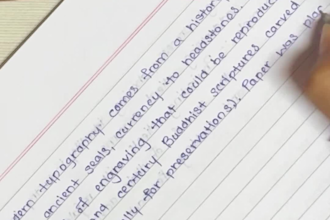 dern typography comes from a histor
ancient seals, currency to headstones.
of engraving that could be reproduc
and century Buddhist scriptures carved
lly for preservations). Paper was